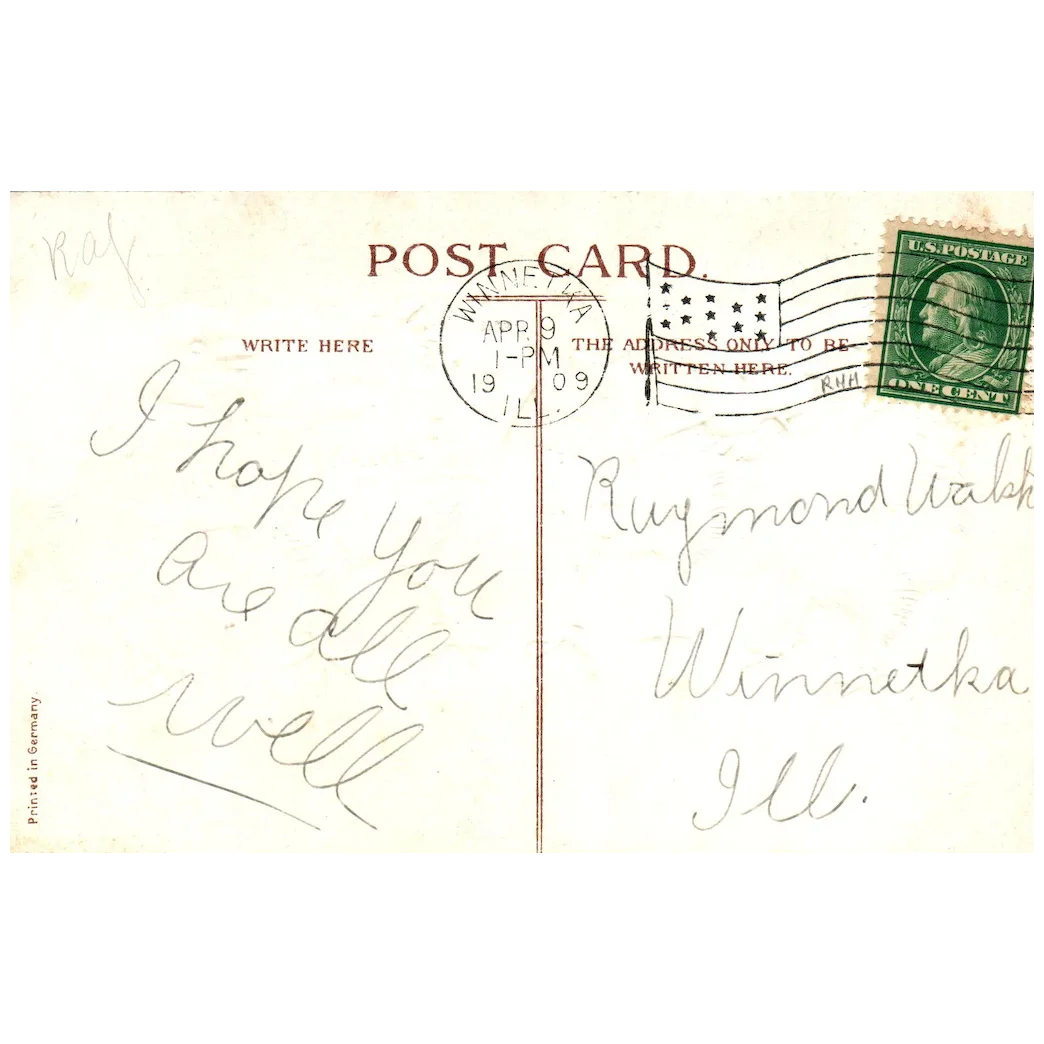 POST CARD.
WINNETKA
APR 9
1-PM
1909
ILL.
U.S. POSTAGE
ONE CENT
WRITE HERE
THE ADDRESS ONLY TO BE-
WRITTEN HERE.
RHH
I hope You
Are all
well
Raymond Walsh
Winnetka
Ill.
Printed in Germany.